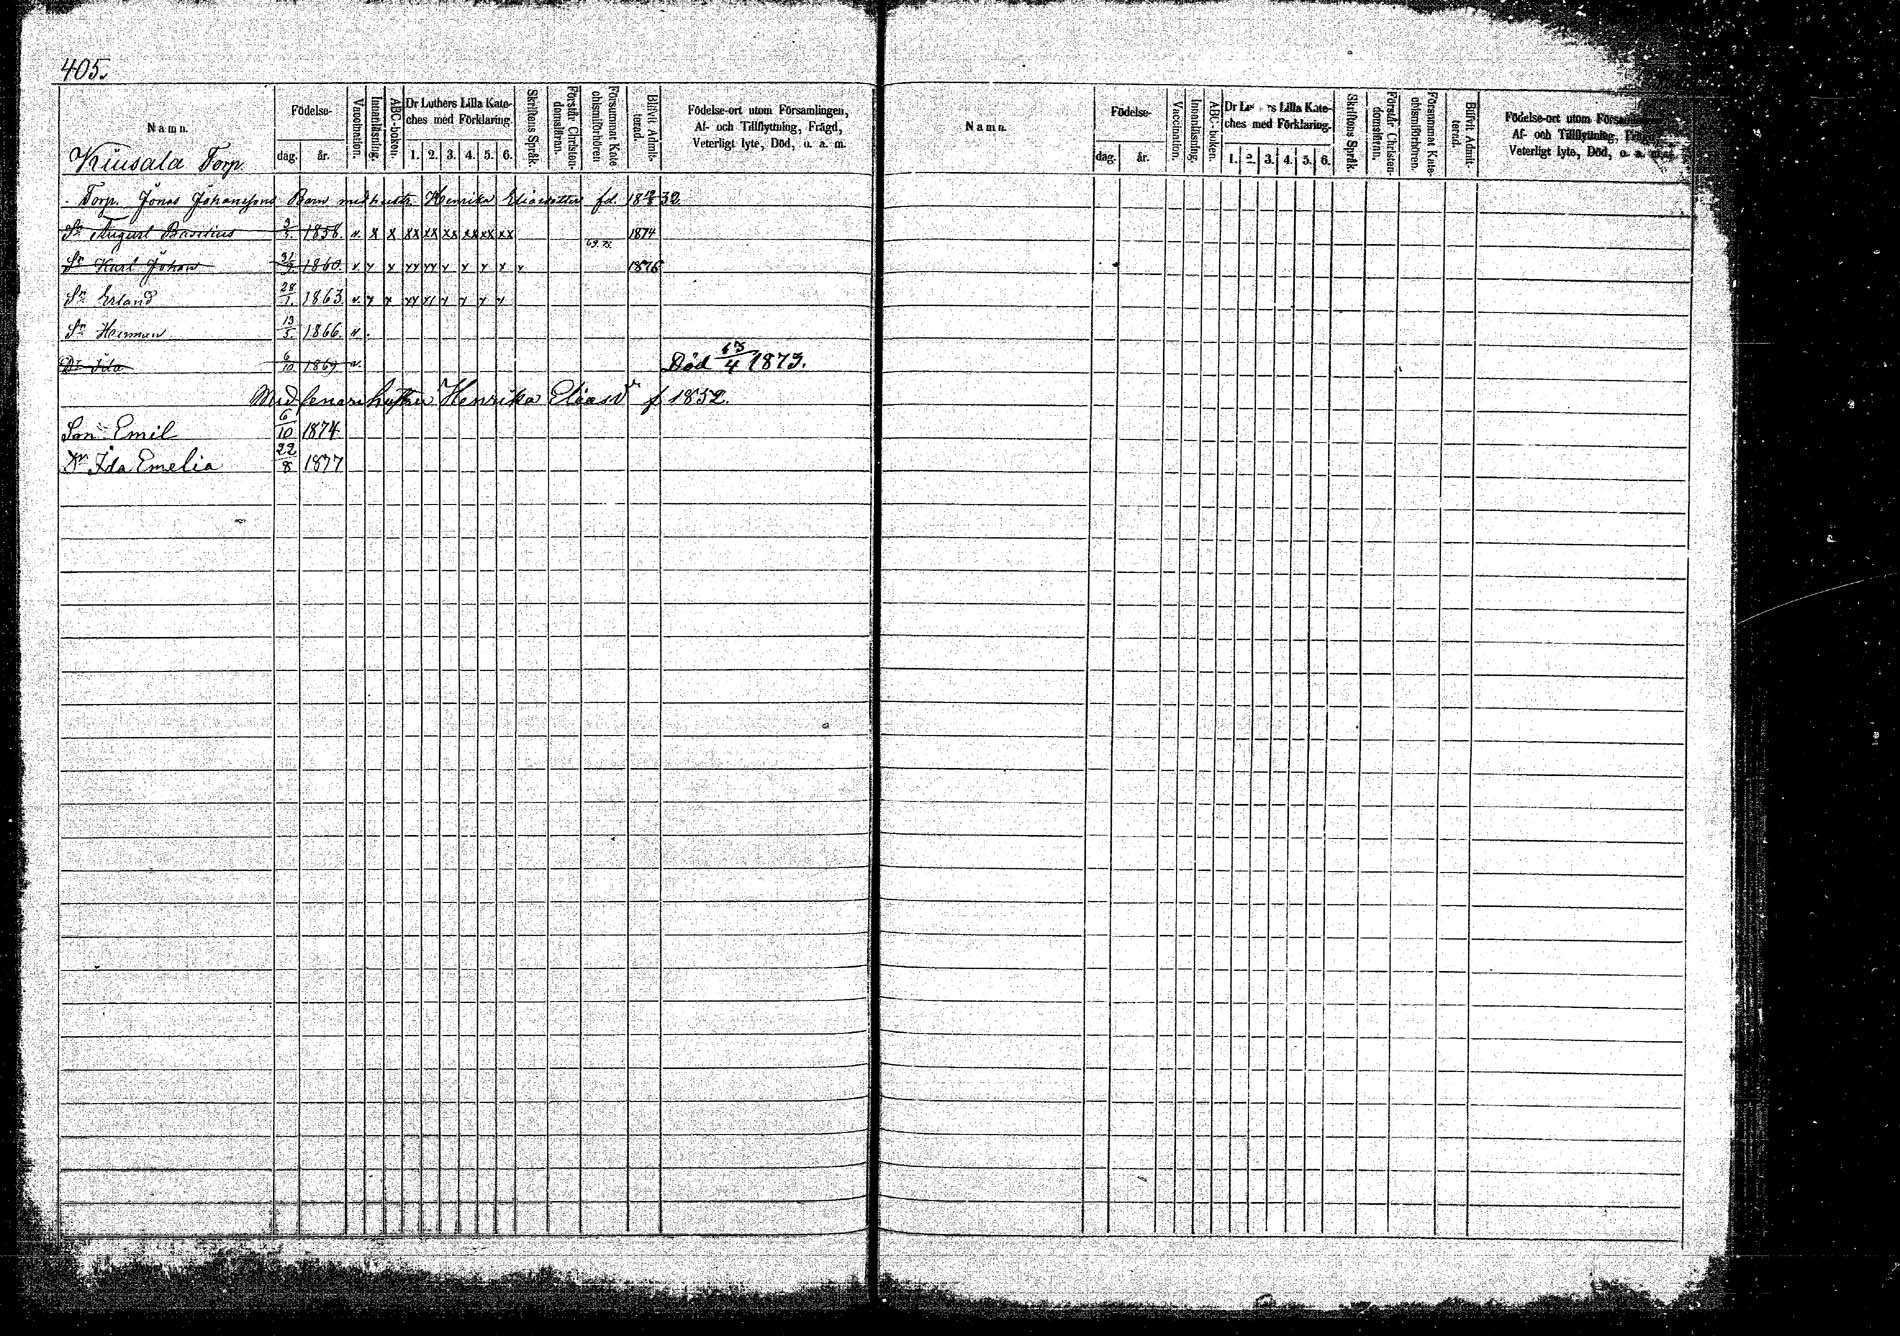 405.
Namn.
Födelse-
dag.
år.
Vaccination.
Innanläsning.
ABC-boken.
Dr Luthers Lilla Kate-
ches med Förklaring.
1. 2. 3. 4. 5. 6.
Skriftens Språk.
Förstår Christen-
domsläran.
Försummat Kate-
chismiförhören
Blifvit Admit-
terad.
Födelse-ort utom Församlingen,
Af- och Tillflyttning, Frägd,
Veterligt lyte, Död, o. a. m.
Torp.
Torp. Jonas Johanssons Barn med hustr. Henrika Eliasdotter fd. 18 32
Sn August 1858. v. x x xx xx xx xx xx xx 1874
Sn Karl Johan 31 1860. v. 1876
Sn Erland 28/1. 1863. v.
Sn Herman 13/5. 1866. v.
Dr Ida 6/10 1869 v. Död 4 1873.
Med senare hustru Henrika Eliasdr f 1852.
Son Emil 6/10 1874
Dr Ida Emelia 22/8 1877
Namn.
Födelse-
dag.
år.
Vaccination.
Innanläsning.
ABC-boken.
Dr Lilla Kate-
ches med Förklaring.
1. 2. 3. 4. 5. 6.
Skriftens Språk.
Förstår Christen-
domsläran.
Försummat Kate-
chismiförhören.
Blifvit Admit-
terad.
Födelse-ort utom
Af- och Tillflyttning,
Veterligt lyte, Död, o. a.